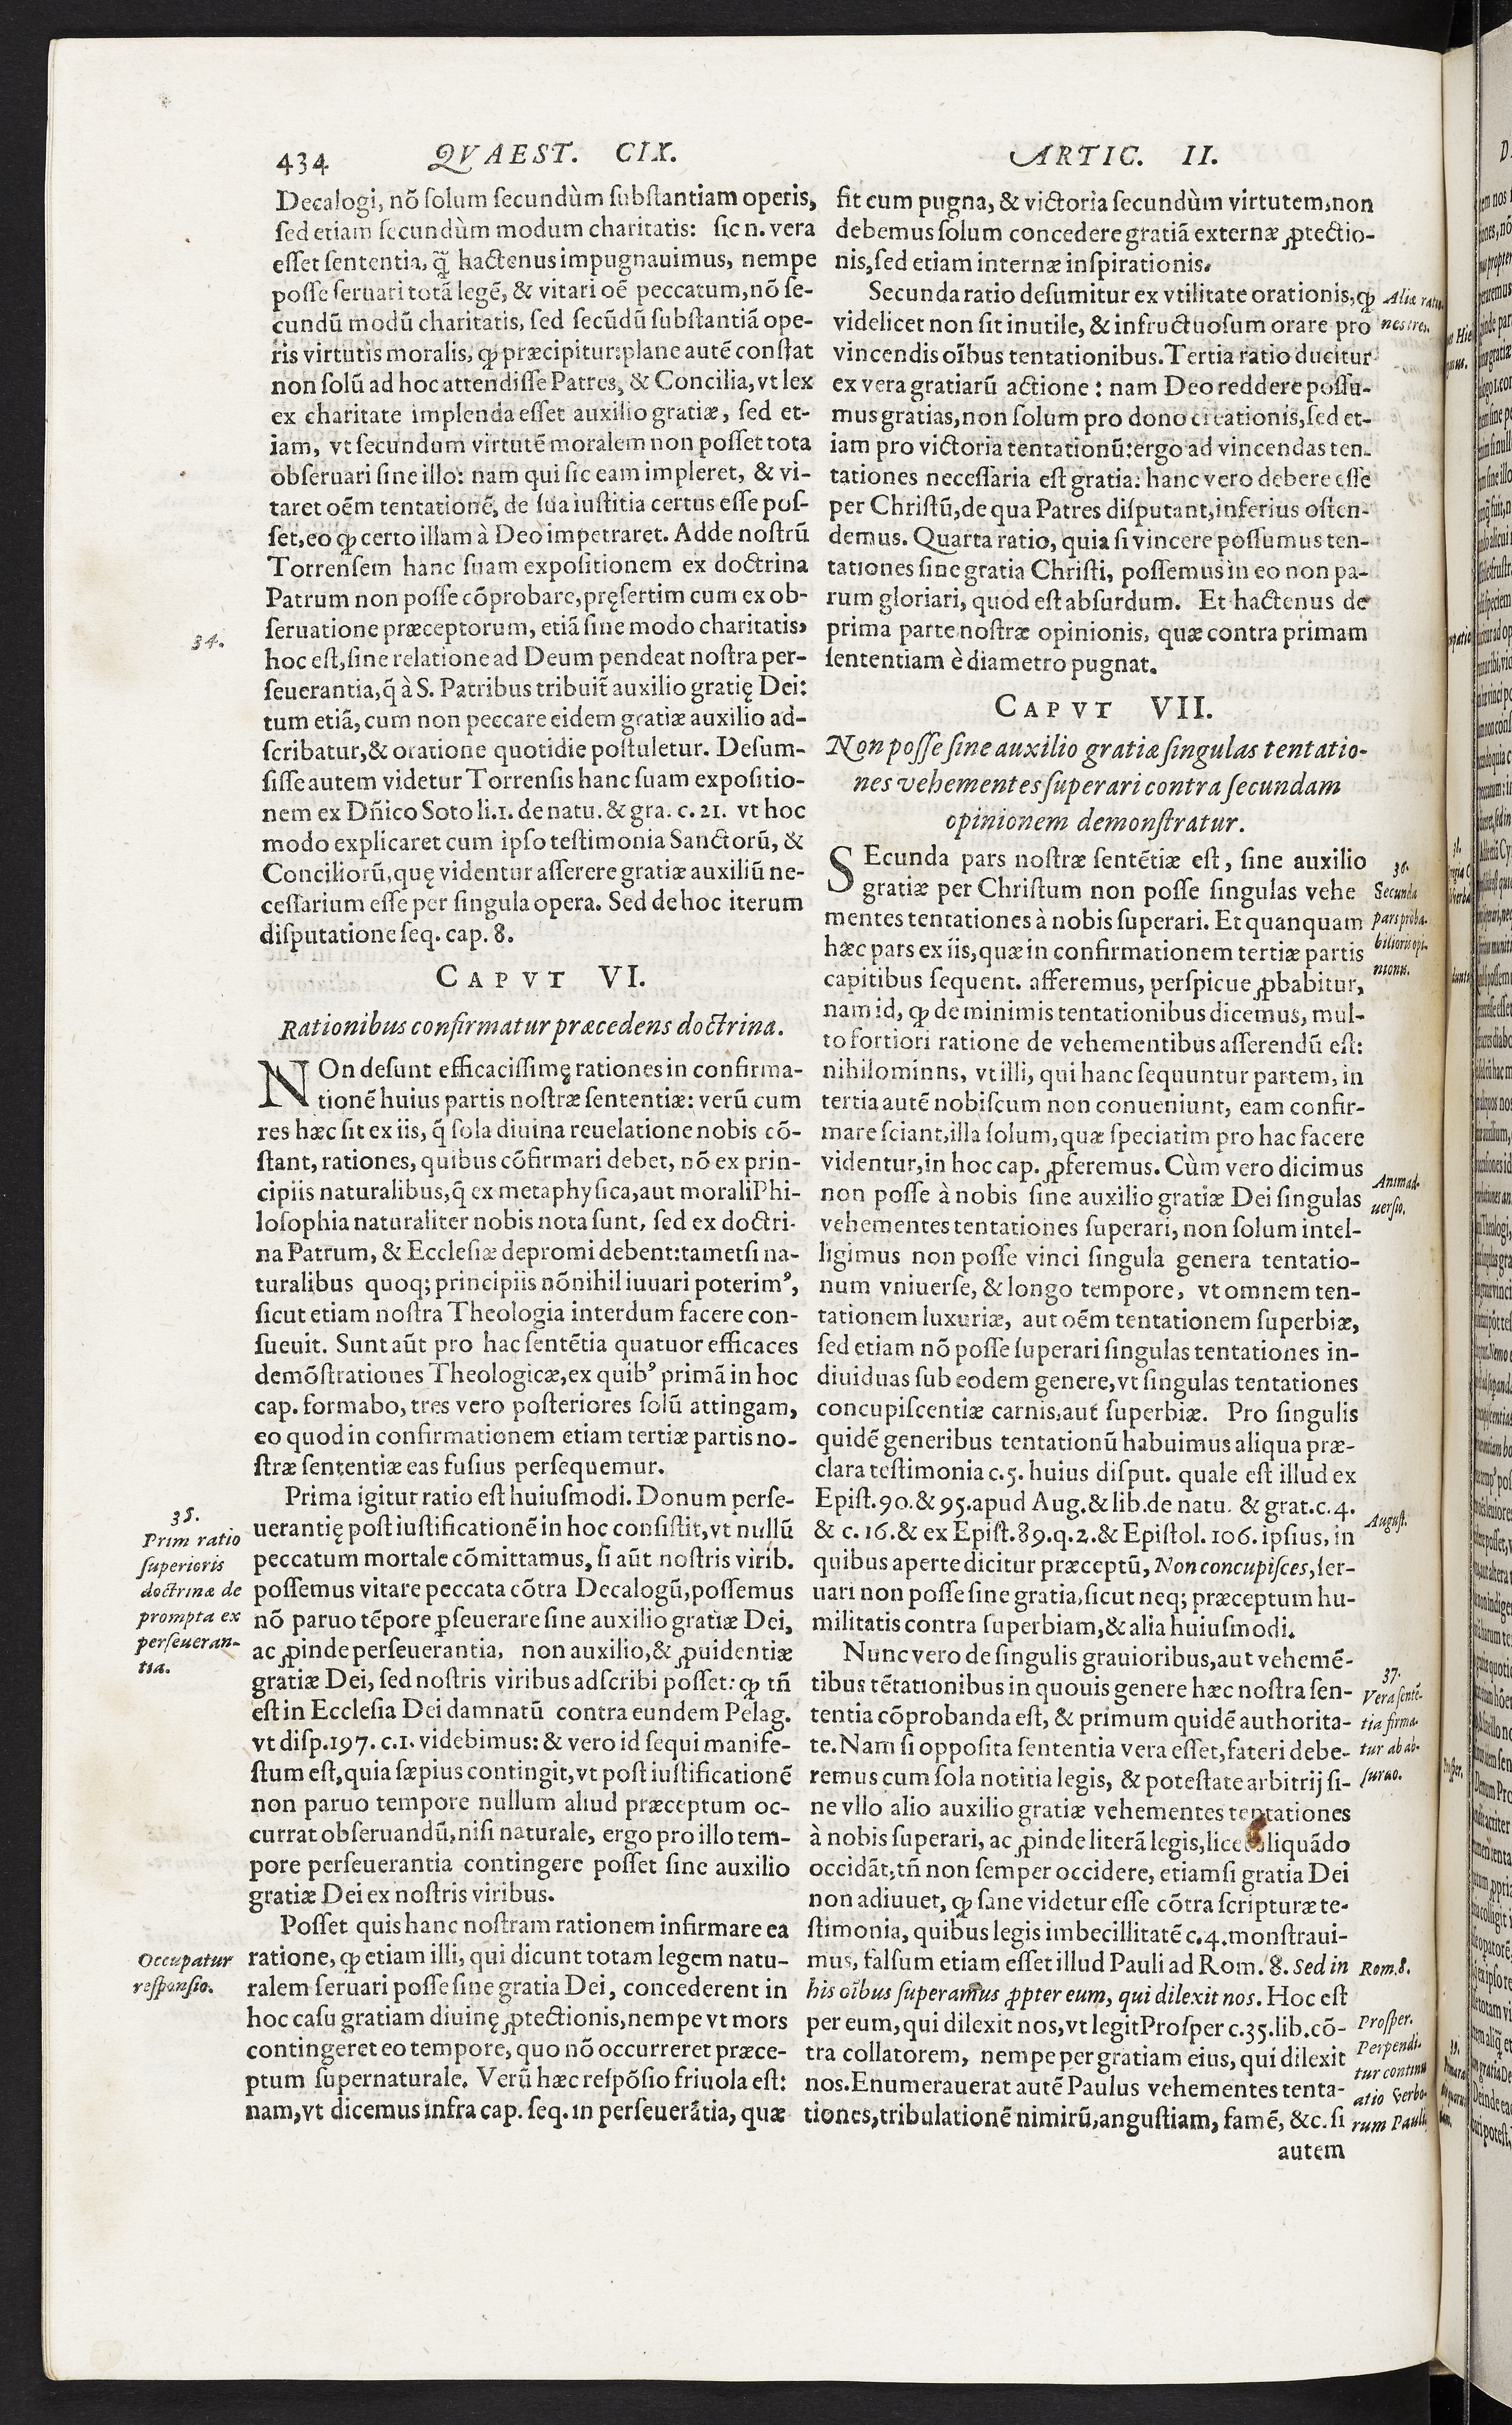 434 QVAEST. CIX. ARTIC. II.
Decalogi, nõ ſolum ſecundùm ſubſtantiam operis,
ſed etiam ſecundùm modum charitatis: ſic n. vera
eſſet ſententia, q̃ hactenus impugnauimus, nempe
poſſe ſeruari totã legẽ, & vitari oẽ peccatum, nõ ſe-
cundũ modũ charitatis, ſed ſecũdũ ſubſtantiã ope-
ris virtutis moralis, ꝙ præcipitur: plane autẽ conſtat
non ſolũ ad hoc attendiſſe Patres, & Concilia, vt lex
ex charitate implenda eſſet auxilio gratiæ, ſed et-
iam, vt ſecundum virtutẽ moralem non poſſet tota
obſeruari ſine illo: nam qui ſic eam impleret, & vi-
taret oẽm tentationẽ, de ſua iuſtitia certus eſſe poſ-
ſet, eo ꝙ certo illam à Deo impetraret. Adde noſtrũ
Torrenſem hanc ſuam expoſitionem ex doctrina
Patrum non poſſe cõprobare, pręſertim cum ex ob-
ſeruatione præceptorum, etiã ſine modo charitatis,
hoc eſt, ſine relatione ad Deum pendeat noſtra per-
ſeuerantia, q̃ à S. Patribus tribuit̃ auxilio gratię Dei:
tum etiã, cum non peccare eidem gratiæ auxilio ad-
ſcribatur, & oratione quotidie poſtuletur. Deſum-
ſiſſe autem videtur Torrenſis hanc ſuam expoſitio-
nem ex Dñico Soto li.1. de natu. & gra. c. 21. vt hoc
modo explicaret cum ipſo teſtimonia Sanctorũ, &
Conciliorũ, quę videntur aſſerere gratiæ auxiliũ ne-
ceſſarium eſſe per ſingula opera. Sed de hoc iterum
diſputatione ſeq. cap. 8.
34.
CAPVT VI.
Rationibus confirmatur præcedens doctrina.
NOn deſunt efficaciſſimę rationes in confirma-
tionẽ huius partis noſtræ ſententiæ: verũ cum
res hæc ſit ex iis, q̃ ſola diuina reuelatione nobis cõ-
ſtant, rationes, quibus cõfirmari debet, nõ ex prin-
cipiis naturalibus, q̃ ex metaphyſica, aut morali Phi-
loſophia naturaliter nobis nota ſunt, ſed ex doctri-
na Patrum, & Eccleſiæ depromi debent: tametſi na-
turalibus quoq; principiis nõnihil iuuari poterimꝰ,
ſicut etiam noſtra Theologia interdum facere con-
ſueuit. Sunt aũt pro hac ſentẽtia quatuor efficaces
demõſtrationes Theologicæ, ex quibꝰ primã in hoc
cap. formabo, tres vero poſteriores ſolũ attingam,
eo quod in confirmationem etiam tertiæ partis no-
ſtræ ſententiæ eas fuſius perſequemur.
Prima igitur ratio eſt huiuſmodi. Donum perſe-
uerantię poſt iuſtificationẽ in hoc conſiſtit, vt nullũ
peccatum mortale cõmittamus, ſi aũt noſtris virib.
poſſemus vitare peccata cõtra Decalogũ, poſſemus
nõ paruo tẽpore ꝑſeuerare ſine auxilio gratiæ Dei,
ac ꝓinde perſeuerantia, non auxilio, & ꝓuidentiæ
gratiæ Dei, ſed noſtris viribus adſcribi poſſet: ꝙ tñ
eſt in Eccleſia Dei damnatũ contra eundem Pelag.
vt diſp.197. c.1. videbimus: & vero id ſequi manife-
ſtum eſt, quia ſæpius contingit, vt poſt iuſtificationẽ
non paruo tempore nullum aliud præceptum oc-
currat obſeruandũ, niſi naturale, ergo pro illo tem-
pore perſeuerantia contingere poſſet ſine auxilio
gratiæ Dei ex noſtris viribus.
35.
Prim ratio
ſuperioris
doctrinæ de
prompta ex
perſeueran-
tia.
Poſſet quis hanc noſtram rationem infirmare ea
ratione, ꝙ etiam illi, qui dicunt totam legem natu-
ralem ſeruari poſſe ſine gratia Dei, concederent in
hoc caſu gratiam diuinę ꝓtectionis, nempe vt mors
contingeret eo tempore, quo nõ occurreret præce-
ptum ſupernaturale. Verũ hæc reſpõſio friuola eſt:
nam, vt dicemus infra cap. ſeq. in perſeuerãtia, quæ
Occupatur
reſponſio.
fit cum pugna, & victoria ſecundùm virtutem, non
debemus ſolum concedere gratiã externæ ꝓtectio-
nis, ſed etiam internæ inſpirationis.
Secunda ratio deſumitur ex vtilitate orationis, ꝙ
videlicet non ſit inutile, & infructuoſum orare pro
vincendis oĩbus tentationibus. Tertia ratio ducitur
ex vera gratiarũ actione: nam Deo reddere poſſu-
mus gratias, non ſolum pro dono creationis, ſed et-
iam pro victoria tentationũ: ergo ad vincendas ten-
tationes neceſſaria eſt gratia: hanc vero debere eſſe
per Chriſtũ, de qua Patres diſputant, inferius oſten-
demus. Quarta ratio, quia ſi vincere poſſumus ten-
tationes ſine gratia Chriſti, poſſemus in eo non pa-
rum gloriari, quod eſt abſurdum. Et hactenus de
prima parte noſtræ opinionis, quæ contra primam
ſententiam è diametro pugnat.
Aliæ ratio-
nes tres.
CAPVT VII.
Non poſſe ſine auxilio gratiæ ſingulas tentatio-
nes vehementes ſuperari contra ſecundam
opinionem demonſtratur.
SEcunda pars noſtræ ſentẽtiæ eſt, ſine auxilio
gratiæ per Chriſtum non poſſe ſingulas vehe
mentes tentationes à nobis ſuperari. Et quanquam
hæc pars ex iis, quæ in confirmationem tertiæ partis
capitibus ſequent. afferemus, perſpicue ꝓbabitur,
nam id, ꝙ de minimis tentationibus dicemus, mul-
to fortiori ratione de vehementibus aſſerendũ eſt:
nihilominns, vt illi, qui hanc ſequuntur partem, in
tertia autẽ nobiſcum non conueniunt, eam confir-
mare ſciant, illa ſolum, quæ ſpeciatim pro hac facere
videntur, in hoc cap. ꝓferemus. Cùm vero dicimus
non poſſe à nobis ſine auxilio gratiæ Dei ſingulas
vehementes tentationes ſuperari, non ſolum intel-
ligimus non poſſe vinci ſingula genera tentatio-
num vniuerſe, & longo tempore, vt omnem ten-
tationem luxuriæ, aut oẽm tentationem ſuperbiæ,
ſed etiam nõ poſſe ſuperari ſingulas tentationes in-
diuiduas ſub eodem genere, vt ſingulas tentationes
concupiſcentiæ carnis, aut ſuperbiæ. Pro ſingulis
quidẽ generibus tentationũ habuimus aliqua præ-
clara teſtimonia c.5. huius diſput. quale eſt illud ex
Epiſt.90. & 95. apud Aug. & lib. de natu. & grat. c. 4.
& c. 16. & ex Epiſt.89. q.2. & Epiſtol. 106. ipſius, in
quibus aperte dicitur præceptũ, Non concupiſces, ſer-
uari non poſſe ſine gratia, ſicut neq; præceptum hu-
militatis contra ſuperbiam, & alia huiuſmodi.
36.
Secunda
pars proba-
bilioris opi-
nionis.
Animad-
uerſio.
Auguſt.
Nunc vero de ſingulis grauioribus, aut vehemẽ-
tibus tẽtationibus in quouis genere hæc noſtra ſen-
tentia cõprobanda eſt, & primum quidẽ authorita-
te. Nam ſi oppoſita ſententia vera eſſet, fateri debe-
remus cum ſola notitia legis, & poteſtate arbitrij ſi-
ne vllo alio auxilio gratiæ vehementes tentationes
à nobis ſuperari, ac ꝓinde literã legis, licet aliquãdo
occidãt, tñ non ſemper occidere, etiamſi gratia Dei
non adiuuet, ꝙ ſane videtur eſſe cõtra ſcripturæ te-
ſtimonia, quibus legis imbecillitatẽ c.4. monſtraui-
mus, falſum etiam eſſet illud Pauli ad Rom. 8. Sed in
his oĩbus ſuperamus ꝓpter eum, qui dilexit nos. Hoc eſt
per eum, qui dilexit nos, vt legit Proſper c.35. lib. cõ-
tra collatorem, nempe per gratiam eius, qui dilexit
nos. Enumerauerat autẽ Paulus vehementes tenta-
tiones, tribulationẽ nimirũ, anguſtiam, famẽ, &c. ſi
autem
37.
Vera ſentẽ-
tia firma-
tur ab ab-
ſurdo.
Rom. 8.
Proſper.
Perpendi-
tur continu
atio verbo-
rum Pauli